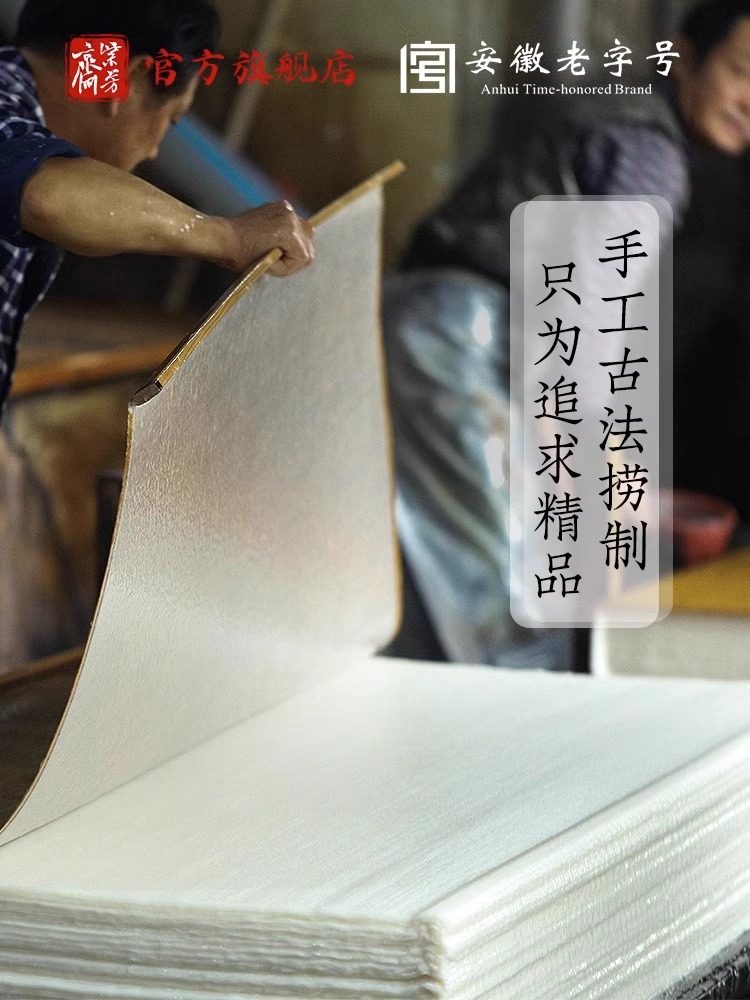 紫芳斋
官方旗舰店
安徽老字号
Anhui Time-honored Brand
手工古法捞制
只为追求精品